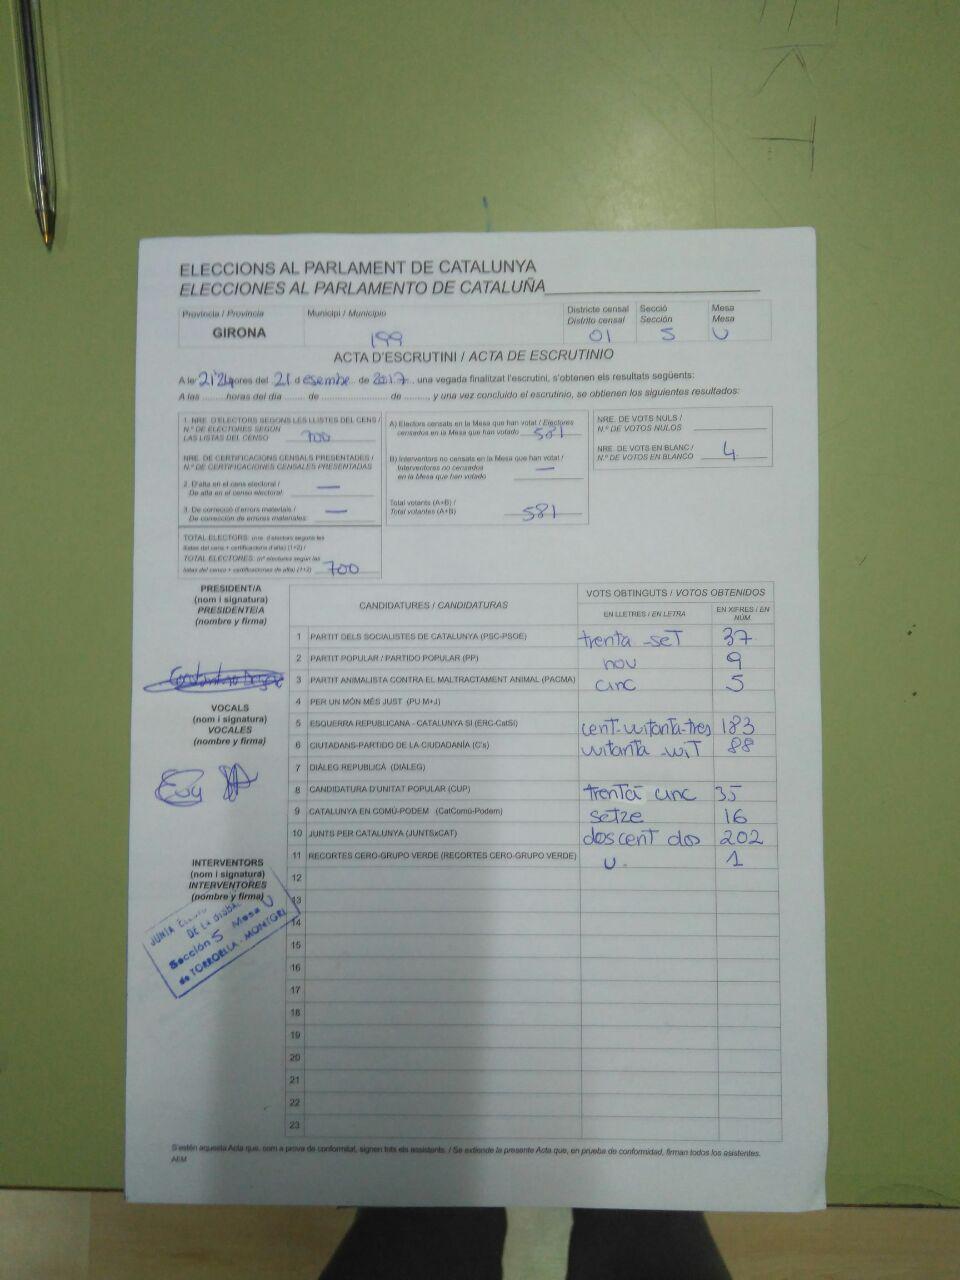 ELECCIONS AL PARLAMENT DE CATALUNYA
ELECCIONES AL PARLAMENTO DE CATALUÑA
Província / Provincia
GIRONA
Municipi / Municipio
199
Districte censal
Distrito censal
01
Secció
Sección
5
Mesa
Mesa
U
ACTA D'ESCRUTINI / ACTA DE ESCRUTINIO
A les 21'24 hores del 21 d esembre de 2017, una vegada finalitzat l'escrutini, s'obtenen els resultats següents:
A las ......... horas del día ...... de ............... de ........, y una vez concluido el escrutinio, se obtienen los siguientes resultados:
1. NRE. D'ELECTORS SEGONS LES LLISTES DEL CENS /
N.º DE ELECTORES SEGÚN
LAS LISTAS DEL CENSO 700
NRE. DE CERTIFICACIONS CENSALS PRESENTADES /
N.º DE CERTIFICACIONES CENSALES PRESENTADAS
2. D'alta en el cens electoral /
De alta en el censo electoral —
3. De correcció d'errors materials /
De corrección de errores materiales —
TOTAL ELECTORS: (nre. d'electors segons les
llistes del cens + certificacions d'alta) (1+2) /
TOTAL ELECTORES: (nº electores según las
listas del censo + certificaciones de alta) (1+2) 700
A) Electors censats en la Mesa que han votat / Electores
censados en la Mesa que han votado 581
B) Interventors no censats en la Mesa que han votat /
Interventores no censados
en la Mesa que han votado —
Total votants (A+B) /
Total votantes (A+B) 581
NRE. DE VOTS NULS /
N.º DE VOTOS NULOS
NRE. DE VOTS EN BLANC /
N.º DE VOTOS EN BLANCO 4
PRESIDENT/A
(nom i signatura)
PRESIDENTE/A
(nombre y firma)
VOCALS
(nom i signatura)
VOCALES
(nombre y firma)
INTERVENTORS
(nom i signatura)
INTERVENTORES
(nombre y firma)
JUNTA
DE LA BISBAL
Sección 5 Mesa U
de TORROELLA - MONTGRI
CANDIDATURES / CANDIDATURAS
VOTS OBTINGUTS / VOTOS OBTENIDOS
EN LLETRES / EN LETRA
EN XIFRES / EN NÚM.
1 PARTIT DELS SOCIALISTES DE CATALUNYA (PSC-PSOE) trenta-set 37
2 PARTIT POPULAR / PARTIDO POPULAR (PP) nou 9
3 PARTIT ANIMALISTA CONTRA EL MALTRACTAMENT ANIMAL (PACMA) cinc 5
4 PER UN MÓN MÉS JUST (PU M+J)
5 ESQUERRA REPUBLICANA - CATALUNYA SÍ (ERC-CatSí) cent-uitanta-tres 183
6 CIUTADANS-PARTIDO DE LA CIUDADANÍA (C's) uitanta-uit 88
7 DIÀLEG REPUBLICÀ (DIÀLEG)
8 CANDIDATURA D'UNITAT POPULAR (CUP) trenta cinc 35
9 CATALUNYA EN COMÚ-PODEM (CatComú-Podem) setze 16
10 JUNTS PER CATALUNYA (JUNTSxCAT) doscent dos 202
11 RECORTES CERO-GRUPO VERDE (RECORTES CERO-GRUPO VERDE) u. 1
12
13
14
15
16
17
18
19
20
21
22
23
S'estén aquesta Acta que, com a prova de conformitat, signen tots els assistents. / Se extiende la presente Acta que, en prueba de conformidad, firman todos los asistentes.
AEM